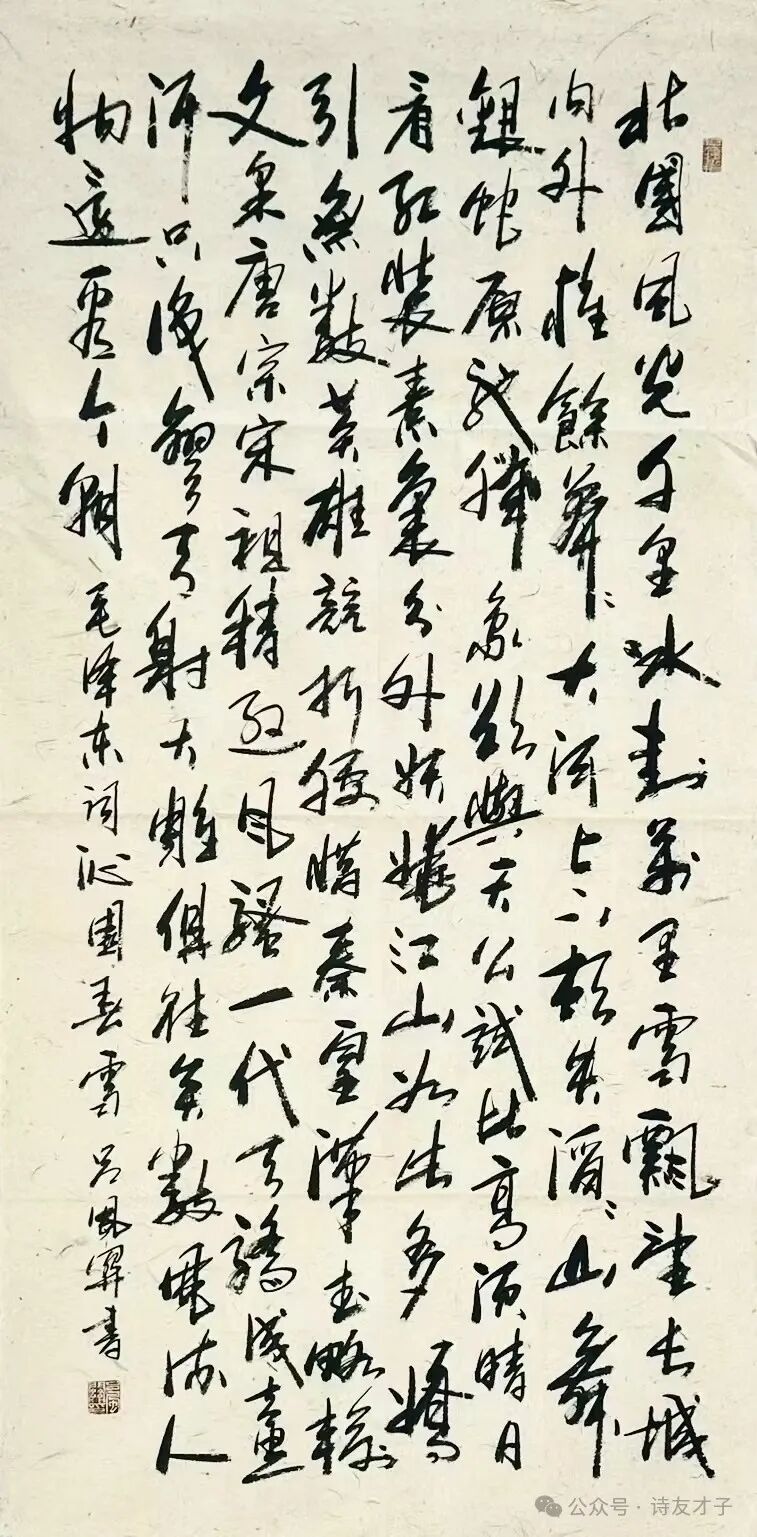 北國風光千里冰封萬里雪飄望長城
內外惟餘莽〻大河上下頓失滔〻山舞
銀蛇原馳象欲與天公試比高須晴日
看紅裝素裹分外妖嬈江山如此多嬌
引無數英雄競折腰惜秦皇漢武略輸
文采唐宗宋祖稍遜風騷一代天驕成吉思
汗只識彎弓射大雕俱往矣數風流人
物還看今朝 毛泽东词沁園春雪 吕書
公众号·诗友才子